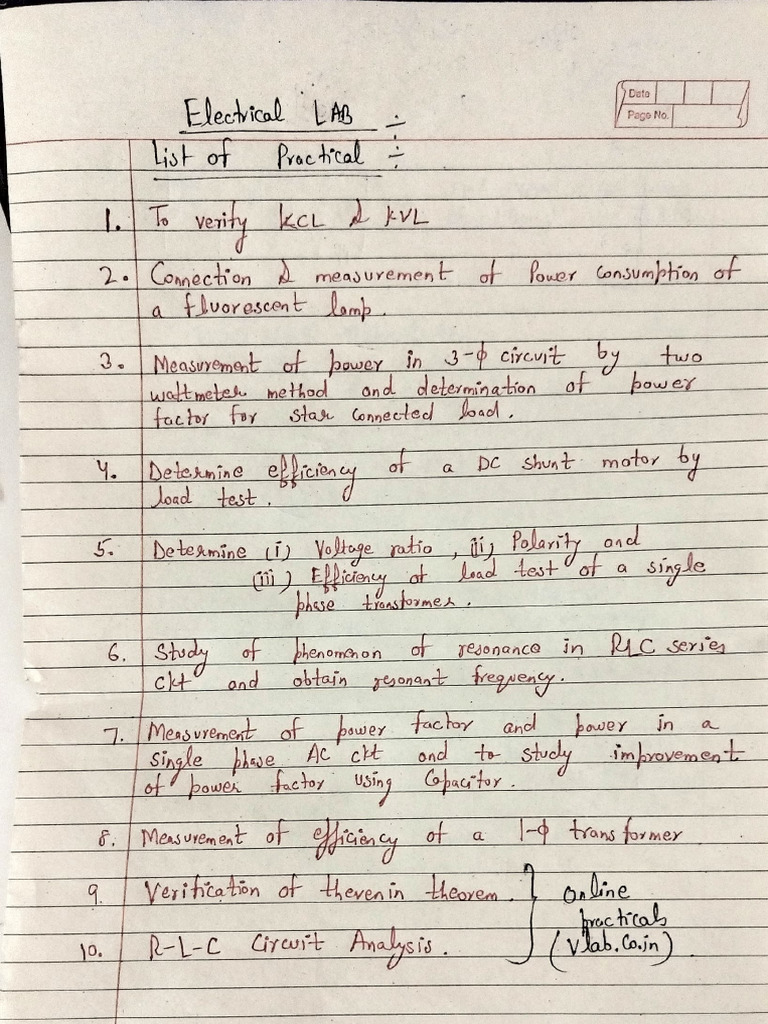 Date
Page No.
Electrical LAB :-
List of Practical :-
1. To verify KCL & KVL
2. Connection & measurement of Power Consumption of
a fluorescent lamp.
3. Measurement of power in 3-ϕ circuit by two
wattmeter method and determination of power
factor for star connected load.
4. Determine efficiency of a DC shunt motor by
load test.
5. Determine (i) Voltage ratio, (ii) Polarity and
(iii) Efficiency of load test of a single
phase transformer.
6. Study of phenomenon of resonance in RLC series
ckt and obtain resonant frequency.
7. Measurement of power factor and power in a
single phase AC ckt and to study improvement
of power factor using Capacitor.
8. Measurement of efficiency of a 1-ϕ transformer
9. Verification of thevenin theorem.
10. R-L-C Circuit Analysis.
Online
practicals
(Vlab.Co.in)